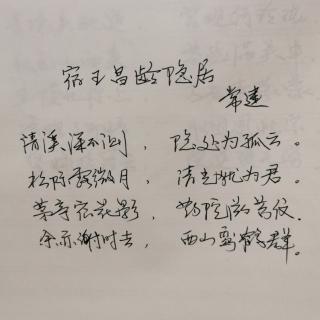 宿王昌龄隐居
常建
清溪深不测，隐处为孤云。
松际露微月，清光犹为君。
茅亭宿花影，药院滋苔纹。
余亦谢时去，西山鸾鹤群。